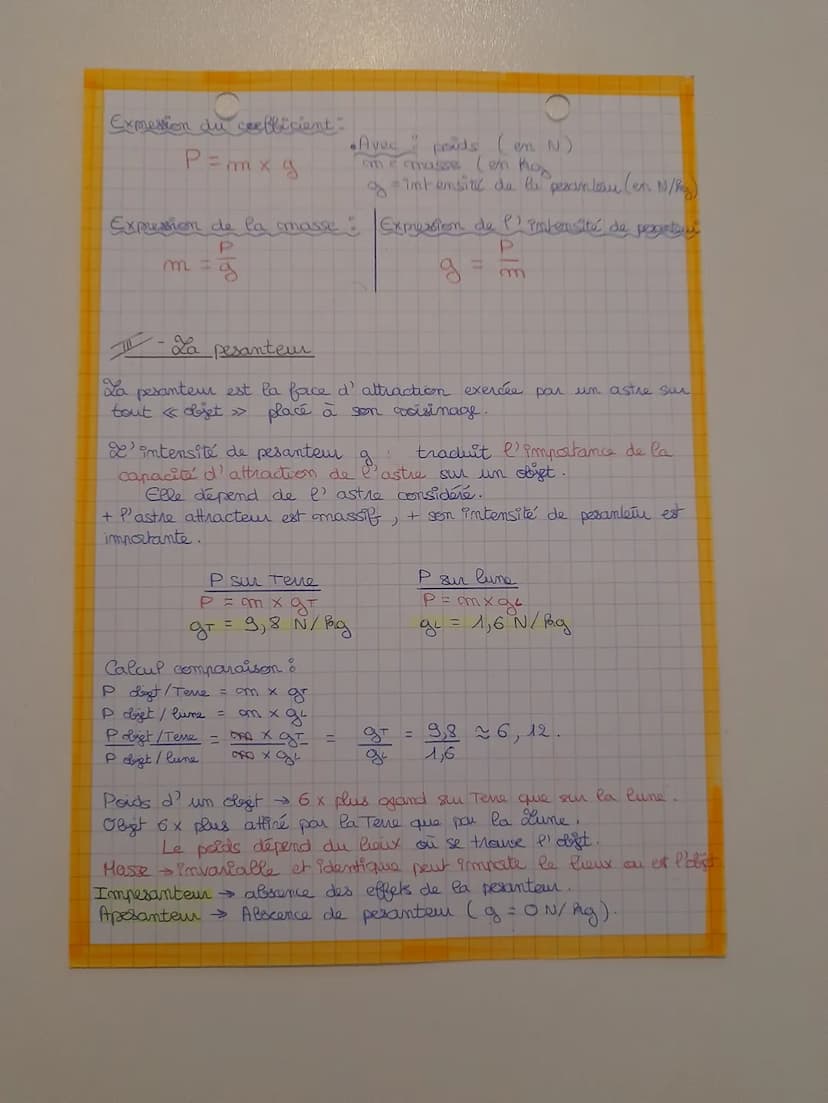 Expression du coefficient :
P = m x g
• Avec : poids (en N)
m = masse (en kg)
g = intensité de la pesanteur (en N/kg)
Expression de la masse :
m = P/g
Expression de l'intensité de pesanteur
g = P/m
III - La pesanteur
La pesanteur est la force d'attraction exercée par un astre sur
tout « objet » placé à son voisinage.
L'intensité de pesanteur g : traduit l'importance de la
capacité d'attraction de l'astre sur un objet.
Elle dépend de l'astre considéré.
+ l'astre attracteur est massif, + son intensité de pesanteur est
importante.
P sur Terre
P = m x gT
gT = 9,8 N/kg
P sur lune
P = m x gL
gL = 1,6 N/kg
Calcul comparaison :
P objet/Terre = m x gT
P objet/lune = m x gL
P objet/Terre / P objet/lune = m x gT / m x gL = gT / gL = 9,8 / 1,6 ≈ 6,12.
Poids d'un objet → 6 x plus grand sur Terre que sur la lune.
Objet 6 x plus attiré par la Terre que par la Lune.
Le poids dépend du lieux où se trouve l'objet.
Masse → invariable et identique peut importe le lieux ou est l'objet
Impesanteur → absence des effets de la pesanteur.
Apesanteur → Abscence de pesanteur (g = 0 N/kg).